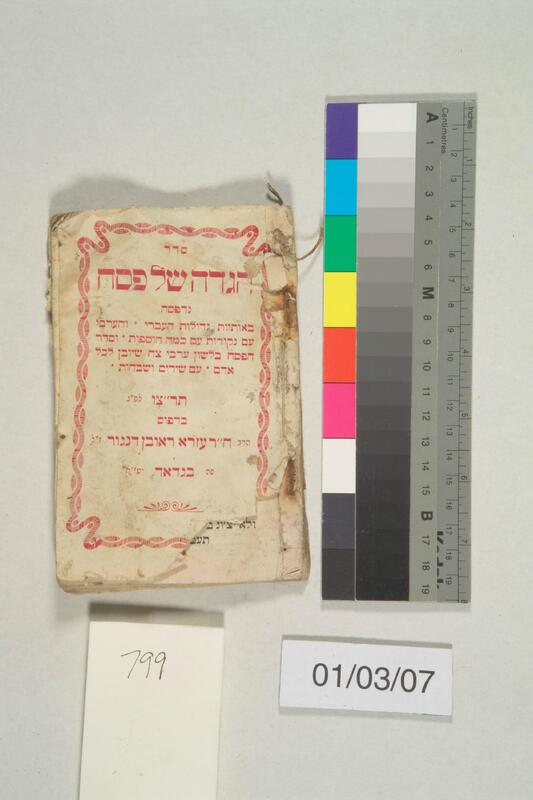 סדר
הגדה של פסח
נדפסה
באותיות גדולות העברי * והערבי
עם נקודות עם כמה הוספות * וסדר
הפסח בלשון ערבי צח שיובן לכל
אדם * עם שירים ושבחות *
תר״צו לפ״ג
בדפוס
הרב ח״ר עזרא ראובן דנגור ז״ל
פה בגדאד יע״א
ולא
תעב
799
01/03/07
Inches
Centimetres
A 1 2 3 4 5 6 M 8 9 10 11 12 13 14 15 B 17 18 19
Kodak